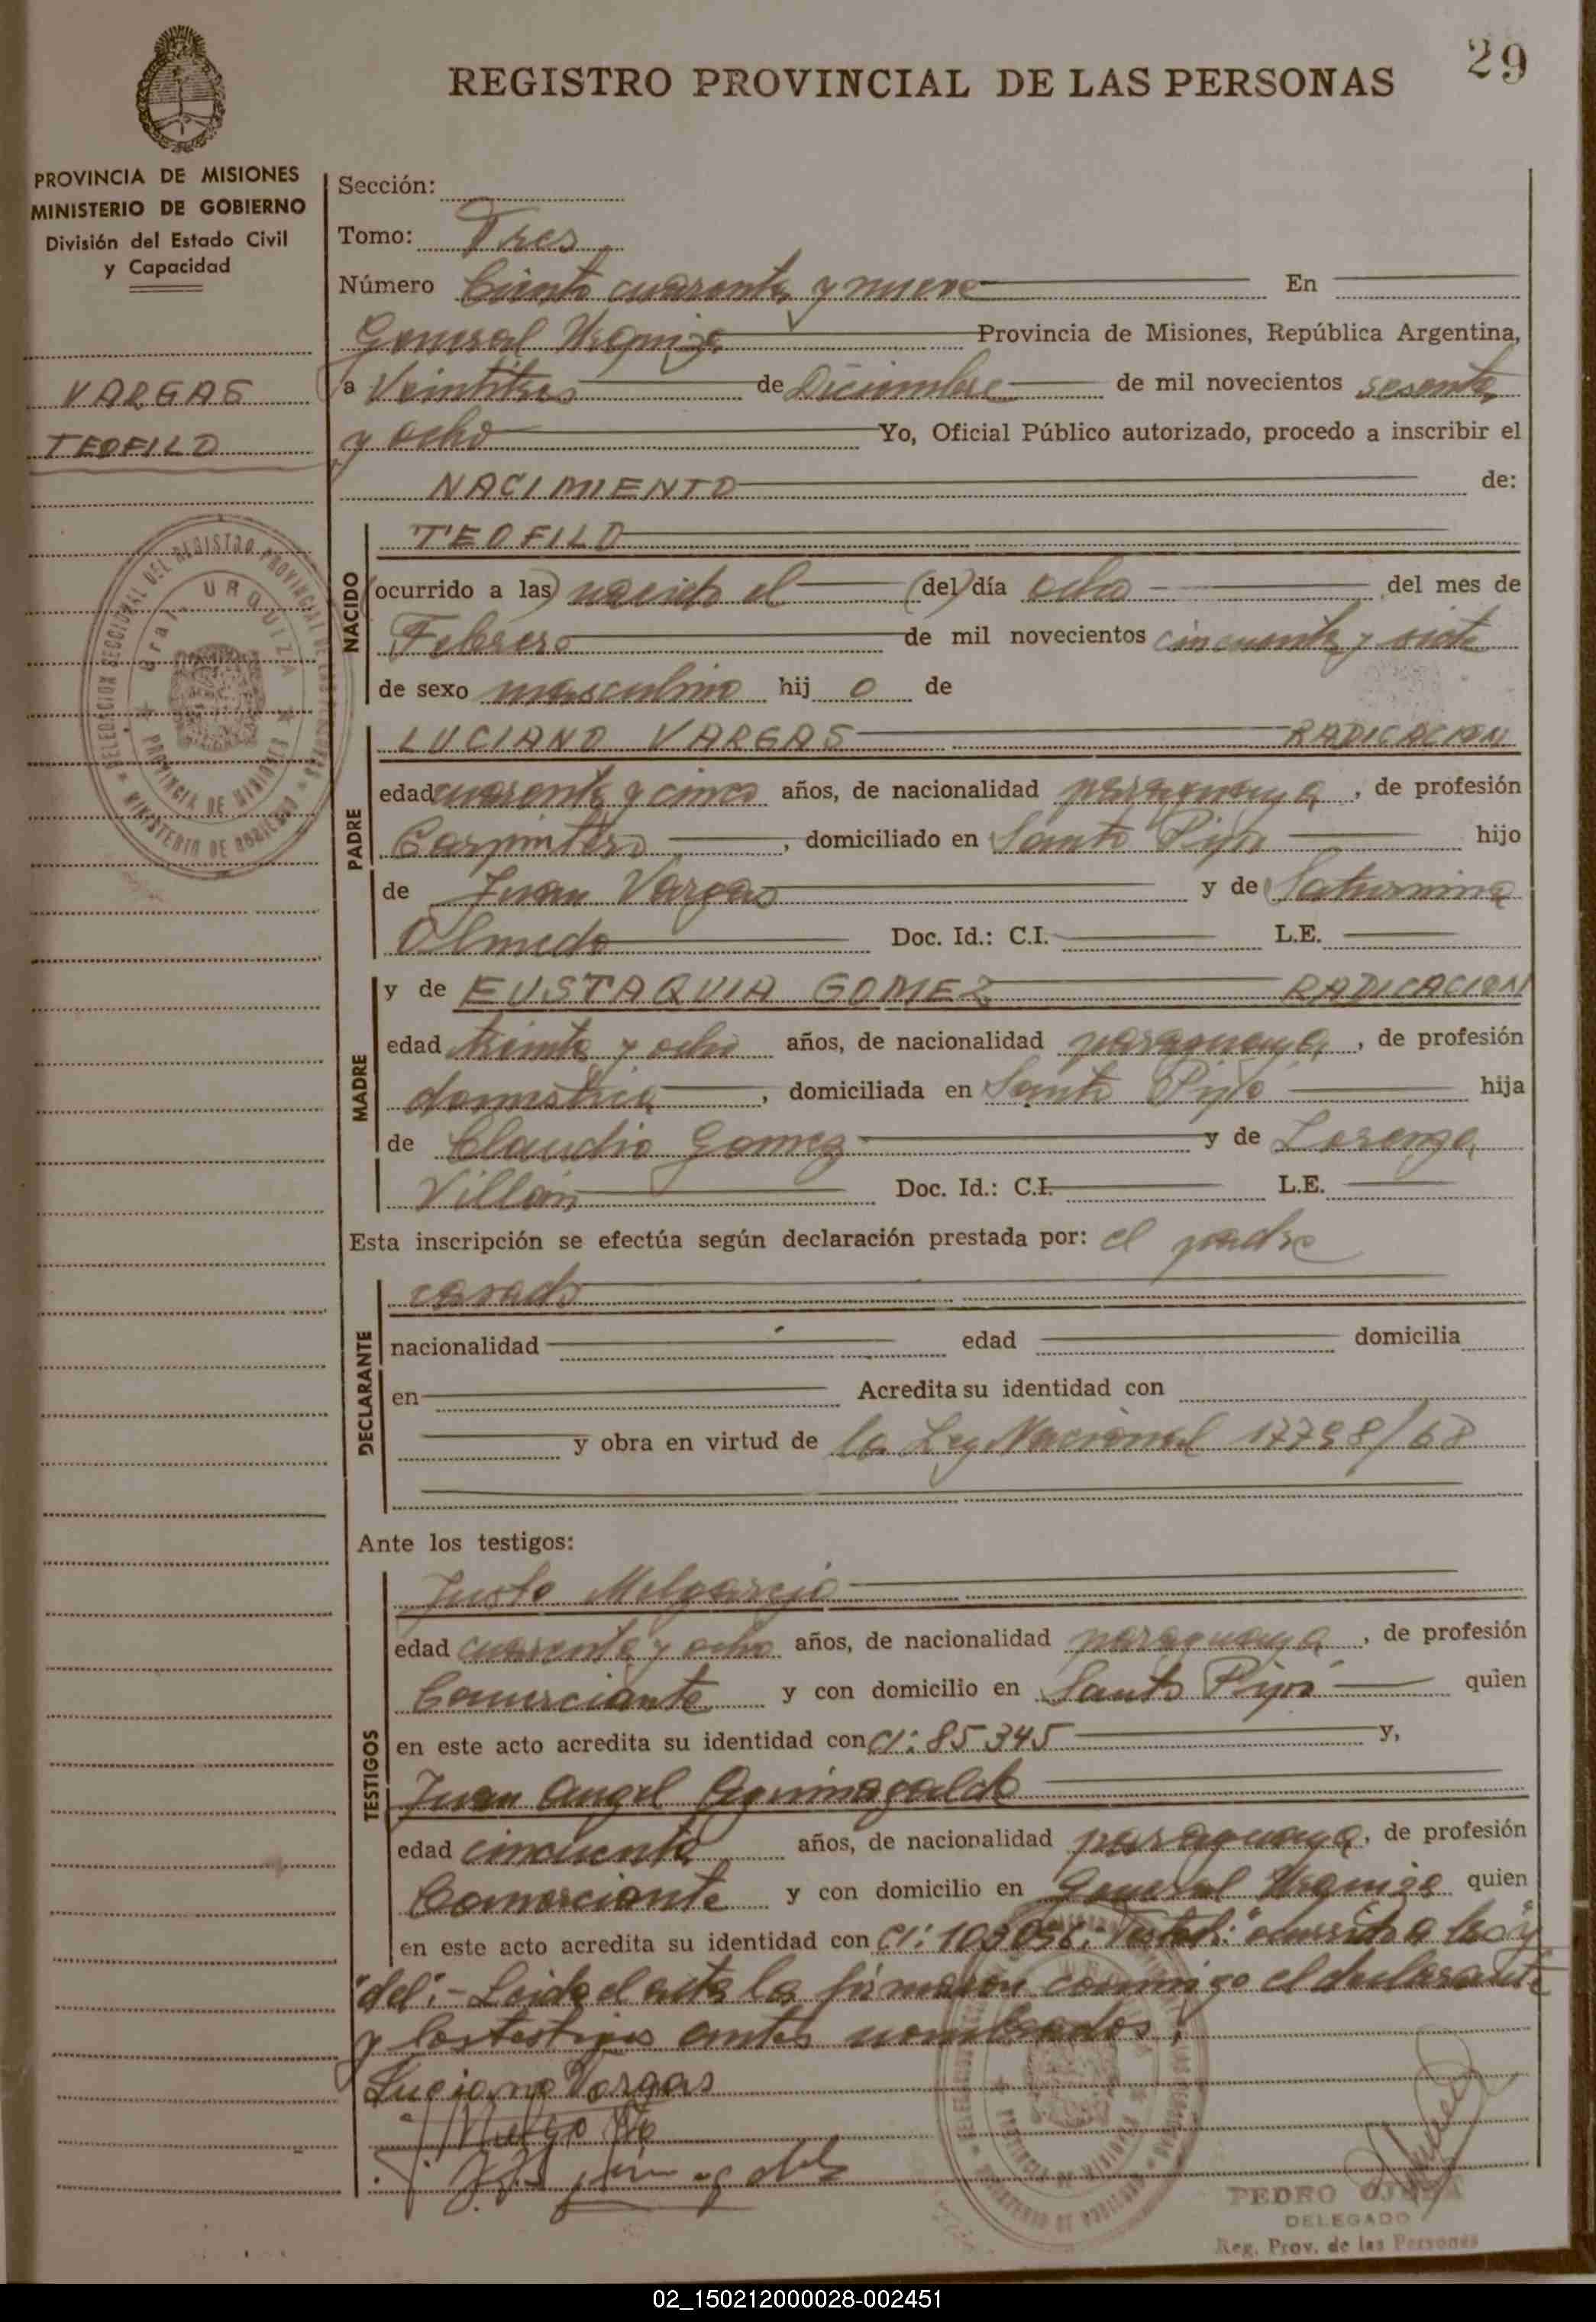 29
REGISTRO PROVINCIAL DE LAS PERSONAS
PROVINCIA DE MISIONES
MINISTERIO DE GOBIERNO
División del Estado Civil
y Capacidad
VARGAS
TEOFILO
Sección:
Tomo: Tres
Número Ciento cuarenta y nueve En
General Urquiza Provincia de Misiones, República Argentina,
a Veintitres de Diciembre de mil novecientos sesenta
y ocho Yo, Oficial Público autorizado, procedo a inscribir el
NACIMIENTO de:
NACIDO
TEOFILO
(ocurrido a las) nacido el (del) día ocho del mes de
Febrero de mil novecientos cincuenta y siete
de sexo masculino hij o de
PADRE
LUCIANO VARGAS RADICACION
edad cuarenta y cinco años, de nacionalidad paraguaya, de profesión
Carpintero, domiciliado en Santo Pipó hijo
de Juan Vargas y de Saturnina
Olmedo Doc. Id.: C.I. L.E.
MADRE
y de EUSTAQUIA GOMEZ RADICACION
edad treinta y ocho años, de nacionalidad paraguaya, de profesión
domestica, domiciliada en Santo Pipó hija
de Claudio Gomez y de Lorenza
Villán Doc. Id.: C.I. L.E.
Esta inscripción se efectúa según declaración prestada por: el padre
DECLARANTE
casado
nacionalidad edad domicilia
en Acredita su identidad con
y obra en virtud de la Ley Nacional 17798/68
Ante los testigos:
TESTIGOS
Justo Melgarejo
edad cuarenta y ocho años, de nacionalidad paraguaya, de profesión
Comerciante y con domicilio en Santo Pipó quien
en este acto acredita su identidad con CI: 85.345 y,
Juan Angel Aguinagalde
edad cincuenta años, de nacionalidad paraguaya, de profesión
Comerciante y con domicilio en General Urquiza quien
en este acto acredita su identidad con CI: Testado: "ocurrido a las" y
"del".- Leida el acta la firmaron conmigo el declarante
y los testigos antes nombrados.
Luciano Vargas
PEDRO OJEDA
DELEGADO
Reg. Prov. de las Personas
DELEGACION SECCIONAL DEL REGISTRO PROVINCIAL DE LAS PERSONAS
Gral. URQUIZA
PROVINCIA DE MISIONES
MINISTERIO DE GOBIERNO
02_150212000028-002451